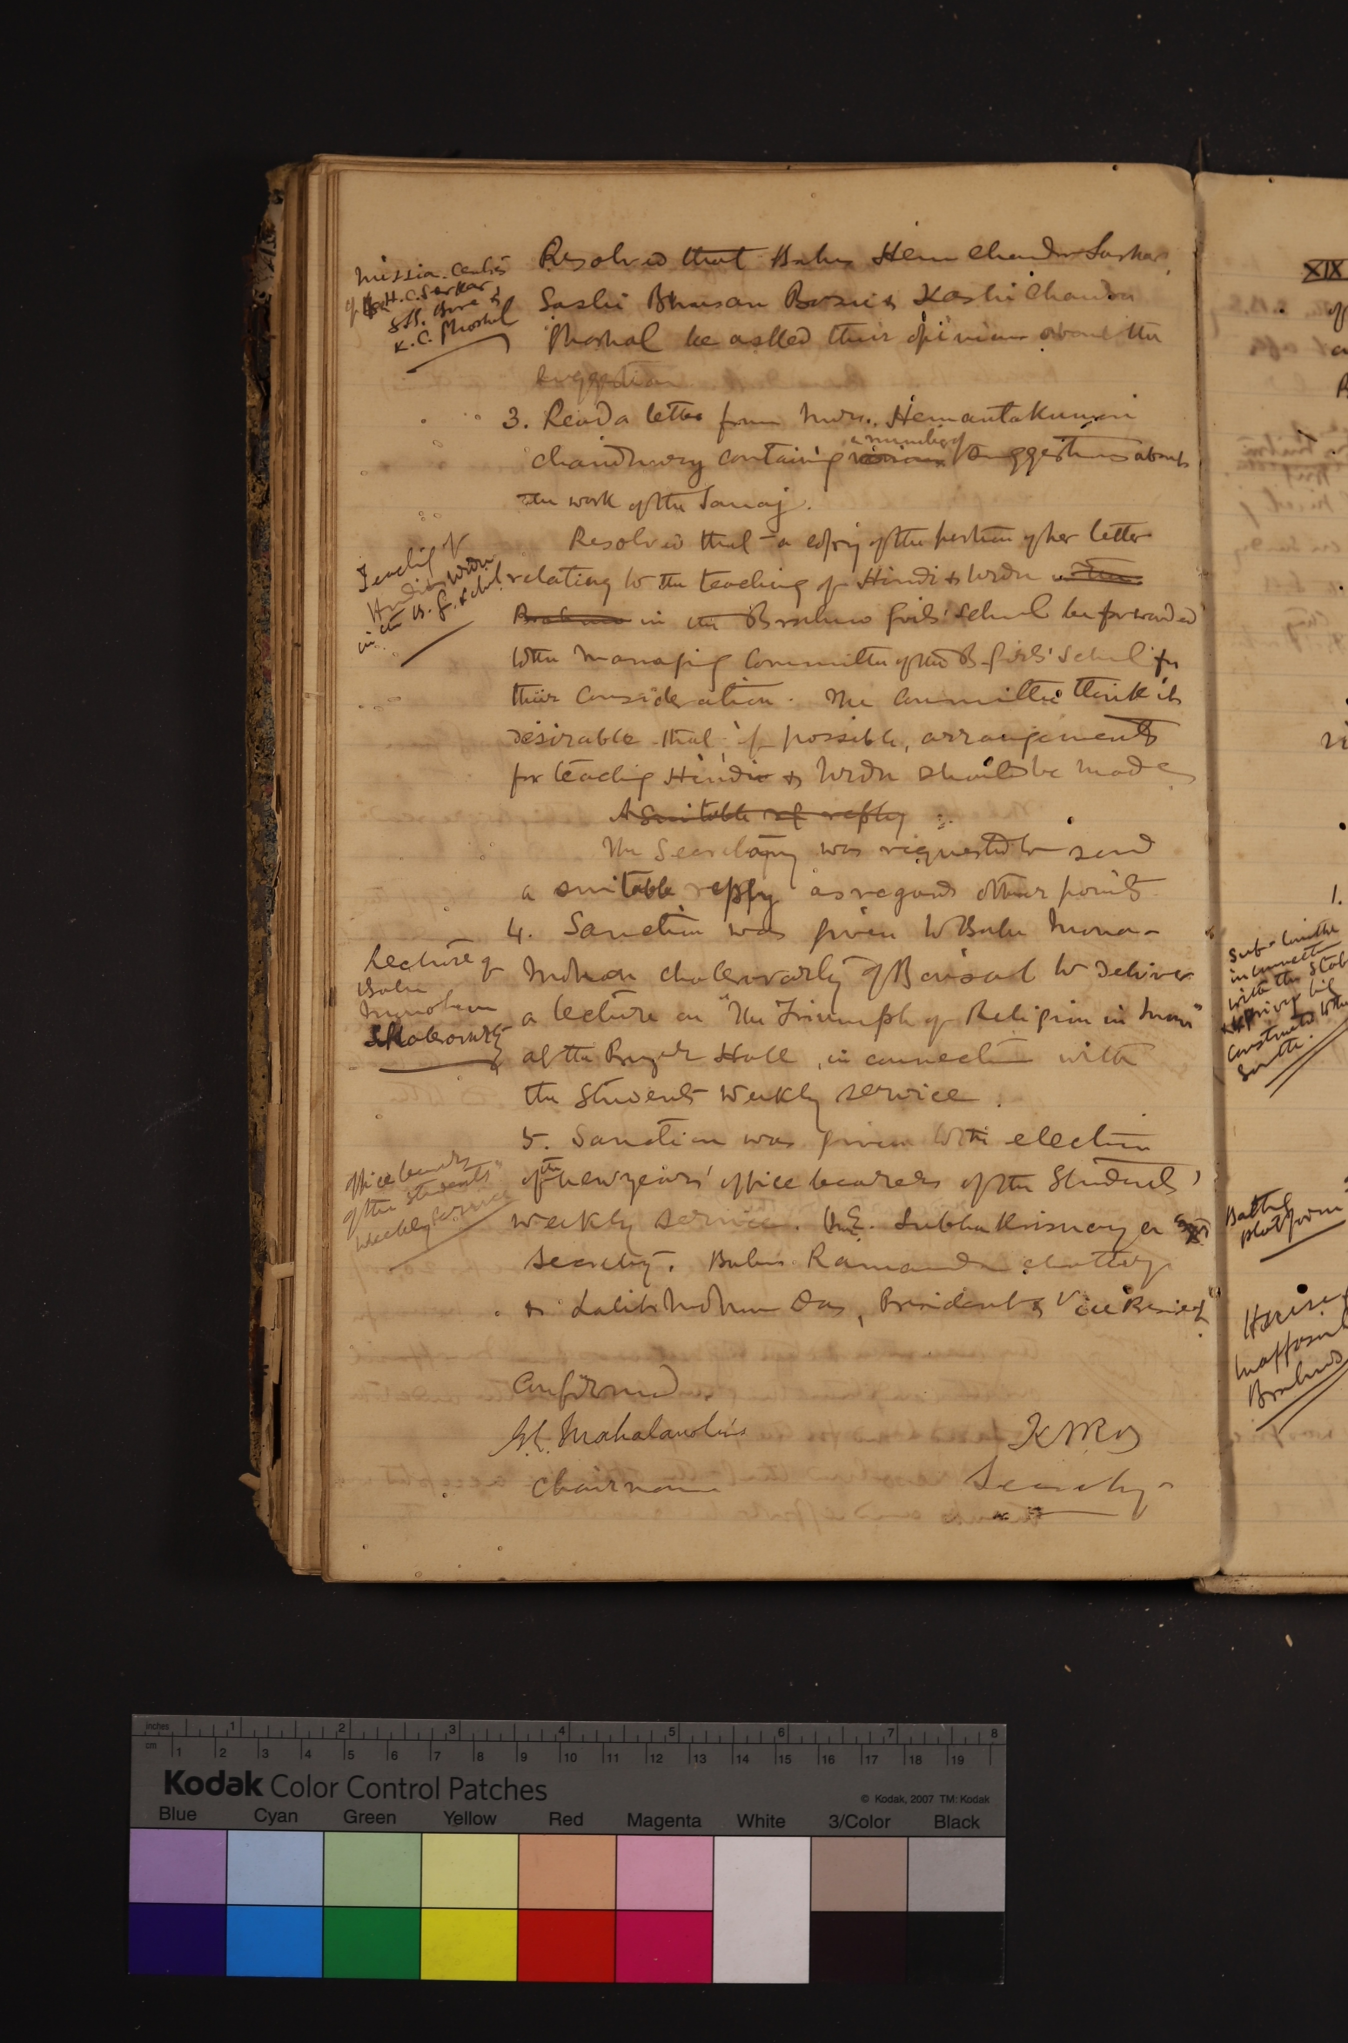 Mission. Centres
of H.C. Sarkar,
S.B. Bose &
K.C. Ghoshal
Resolved that Babus Hem Chandra Sarkar,
Sashi Bhusan Bose & Kashi Chandra
Ghoshal be asked their opinion about the
suggestion.
3. Read a letter from Mrs. Hemantakumari
Chaudhury containing various a number of suggestions about
the work of the Samaj.
Teaching of
Hindi & Urdu
in the B. G. School
Resolved that a copy of the portion of her letter
relating to the teaching of Hindi & Urdu in the
Brahmo in the Brahmo Girls' School be forwarded
to the Managing Committee of the B. Girls' School for
their consideration. The Committee think it
desirable that, if possible, arrangements
for teaching Hindi & Urdu should be made
A suitable of reply
The Secretary was requested to send
a suitable reply as regards other points.
Lecture of
Babu
Manomohan
Chakravarty
4. Sanction was given to Babu Mono-
Mohan Chakravarty of Barisal to deliver
a lecture on "The Triumph of Religion in Man"
at the Prayer Hall, in connection with
the Students Weekly Service.
Office bearers
of the Students'
Weekly Service
5. Sanction was given to the election
of the new years' office bearers of the Students'
Weekly Service. V.E. Subbakrisnayer as
Secretary. Babus Ramananda Chatterji
& Lalit Mohun Das, President & Vice President.
Confirmed
G.C. Mahalanobis
Chairman
Secretary
XIX
1.
Sub-Committee
in connection
with the
privy
constructed
Bathing
platform
House
Mofussil
Brahmos
inches 1 2 3 4 5 6 7 8
cm 1 2 3 4 5 6 7 8 9 10 11 12 13 14 15 16 17 18 19
Kodak Color Control Patches
© Kodak, 2007 TM: Kodak
Blue Cyan Green Yellow Red Magenta White 3/Color Black